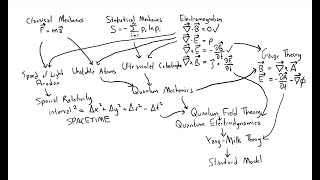 Classical Mechanics
F = ma
Statistical Mechanics
S = -Σ pᵢ ln pᵢ
Electromagnetism
∇·B = 0 ✓
∇·E = ρ
∇×E = -∂B/∂t ✓
∇×B = J + ∂E/∂t
Gauge Theory
B = ∇×A
E = -∂A/∂t - ∇φ
Speed of Light
Paradox
Unstable Atoms
Ultraviolet Catastrophe
Special Relativity
interval² = Δx² + Δy² - Δz² - Δt²
SPACETIME
Quantum Mechanics
Quantum Field Theory
Quantum Electrodynamics
Yang-Mills Theory
Standard Model